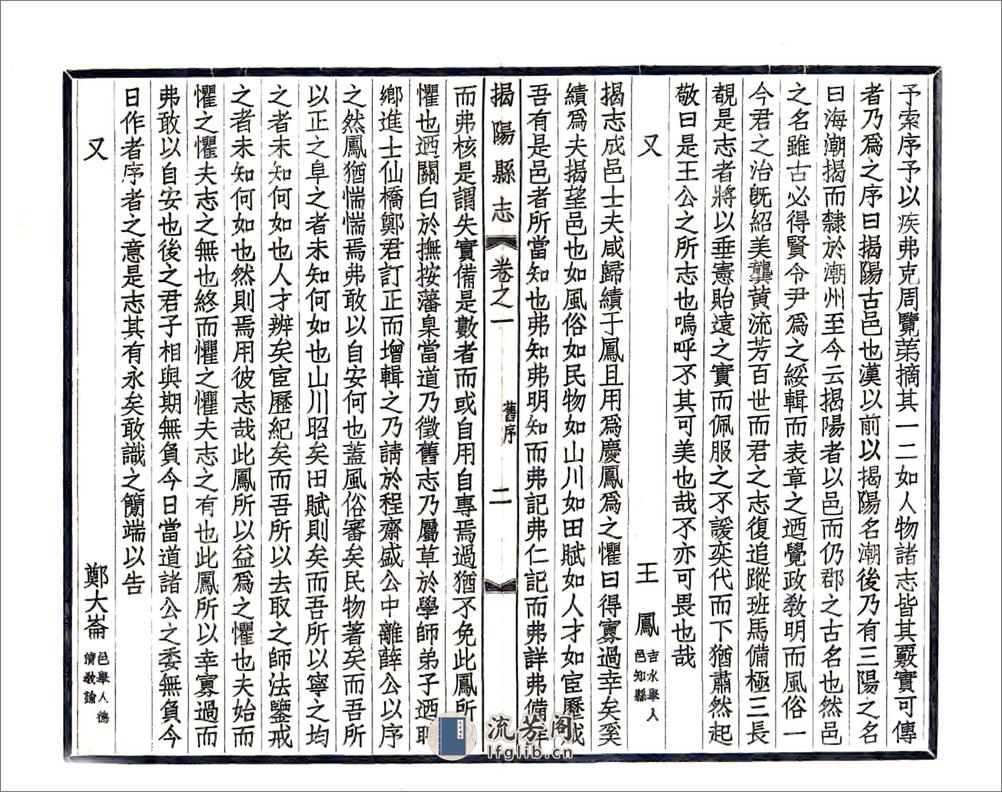 予索序予以疾弗克周覽第摘其一二如人物諸志皆其覈實可傳
者乃爲之序曰揭陽古邑也漢以前以揭陽名潮後乃有三陽之名
曰海潮揭而隸於潮州至今云揭陽者以邑而仍郡之古名也然邑
之名雖古必得賢令尹爲之綏輯而表章之迺覺政敎明而風俗一
今君之治旣紹美龔黃流芳百世而君之志復追蹤班馬備極三長
覩是志者將以垂憲貽遠之實而佩服之不諼奕代而下猶肅然起
敬曰是王公之所志也嗚呼不其可美也哉不亦可畏也哉
又 王鳳 吉水舉人邑知縣
揭志成邑士夫咸歸績于鳳且用爲慶鳳爲之懼曰得寡過幸矣奚
績爲夫揭望邑也如風俗如民物如山川如田賦如人才如宦歷或
吾有是邑者所當知也弗知弗明知而弗記弗仁記而弗詳弗備詳
揭陽縣志 卷之一 舊序 二
而弗核是謂失實備是數者而或自用自專焉過猶不免此鳳所
懼也迺關白於撫按藩臬當道乃徵舊志乃屬草於學師弟子迺聘
鄉進士仙橋鄭君訂正而增輯之乃請於程齋盛公中離薛公以序
之然鳳猶惴惴焉弗敢以自安何也蓋風俗審矣民物著矣而吾所
以正之阜之者未知何如也山川昭矣田賦則矣而吾所以寧之均
之者未知何如也人才辨矣宦歷紀矣而吾所以去取之師法鑒戒
之者未知何如也然則焉用彼志哉此鳳所以益爲之懼也夫始而
懼之懼夫志之無也終而懼之懼夫志之有也此鳳所以幸寡過而
弗敢以自安也後之君子相與期無負今日當道諸公之委無負今
日作者序者之意是志其有永矣敢識之簡端以告
又 鄭大崙 邑舉人德慶敎諭
流芳阁
lfglib.cn